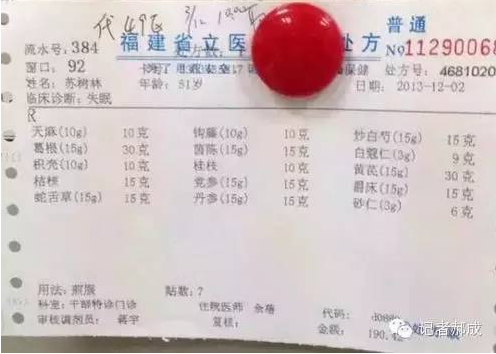 代煎
普通
流水号: 384
福建省立医 处方
No11290068
窗口: 92
保健
处方号: 4681020
姓名: 苏树林
年龄: 51岁
日期: 2013-12-02
临床诊断: 失眠
R
天麻(10g) 10克 钩藤(10g) 10克 炒白芍(15g) 15克
葛根(15g) 30克 茵陈(15g) 15克 白蔻仁(3g) 9克
枳壳(10g) 10克 桂枝 10克 黄芪(15g) 30克
桔梗 15克 党参(15g) 15克 爵床(15g) 15克
蛇舌草(15g) 15克 丹参(15g) 15克 砂仁(3g) 6克
用法: 煎服 贴数: 7
科室: 干部特诊门诊 住院医师 余蓓 代码: d086
审核调剂员: 蒋宇 复核: 金额: 190.4
记者郝成